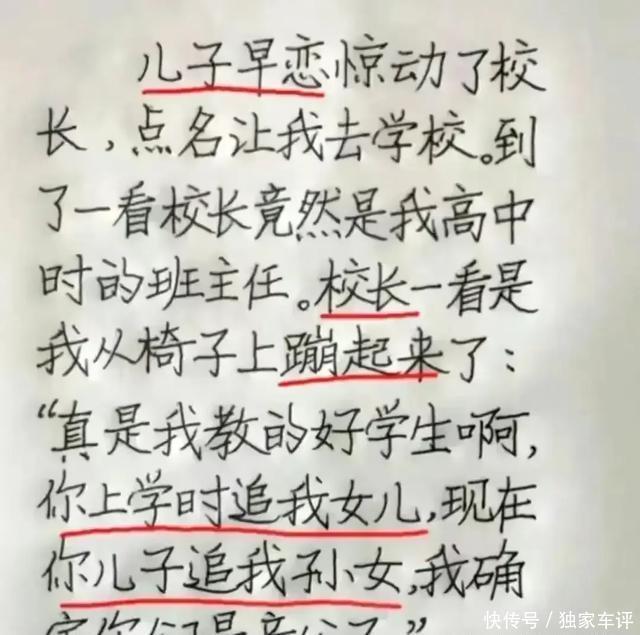 儿子早恋惊动了校
长,点名让我去学校。到
了一看校长竟然是我高中
时的班主任。校长一看是
我从椅子上蹦起来了:
“真是我教的好学生啊,
你上学时追我女儿,现在
你儿子追我孙女,我确
定你们是亲父子。”
快传号/独家车评